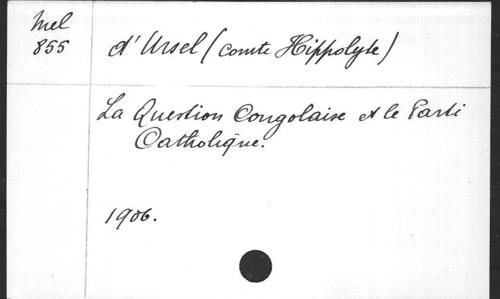 Mel
855
d'Ursel (comte Hippolyte)
La Question Congolaise et le Parti
Catholique.
1906.